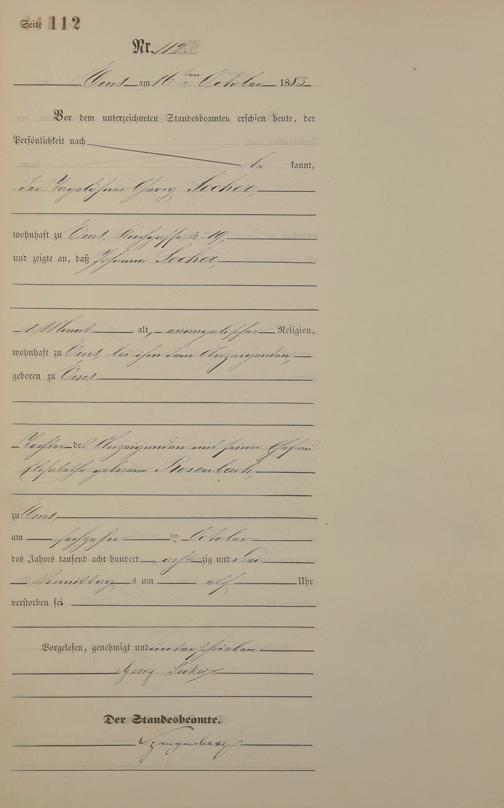 Seite 112
Nr. 112
Ems am 16ten October 1883
Vor dem unterzeichneten Standesbeamten erschien heute, der
Persönlichkeit nach be kannt,
der Georg Socher,
wohnhaft zu Ems, 19,
und zeigte an, daß Johanna Socher,
1 Monat alt, evangelischer Religion,
wohnhaft zu Ems, bei ihm dem Anzeigenden,
geboren zu Ems,
Tochter des Anzeigenden und seiner Ehefrau
Elisabetha geborene Rosenbach,
zu Ems,
am sechzehn ten October
des Jahres tausend acht hundert acht zig und drei
Vormittag s um elf Uhr
verstorben sei
Vorgelesen, genehmigt und unterschrieben
Georg
Der Standesbeamte.